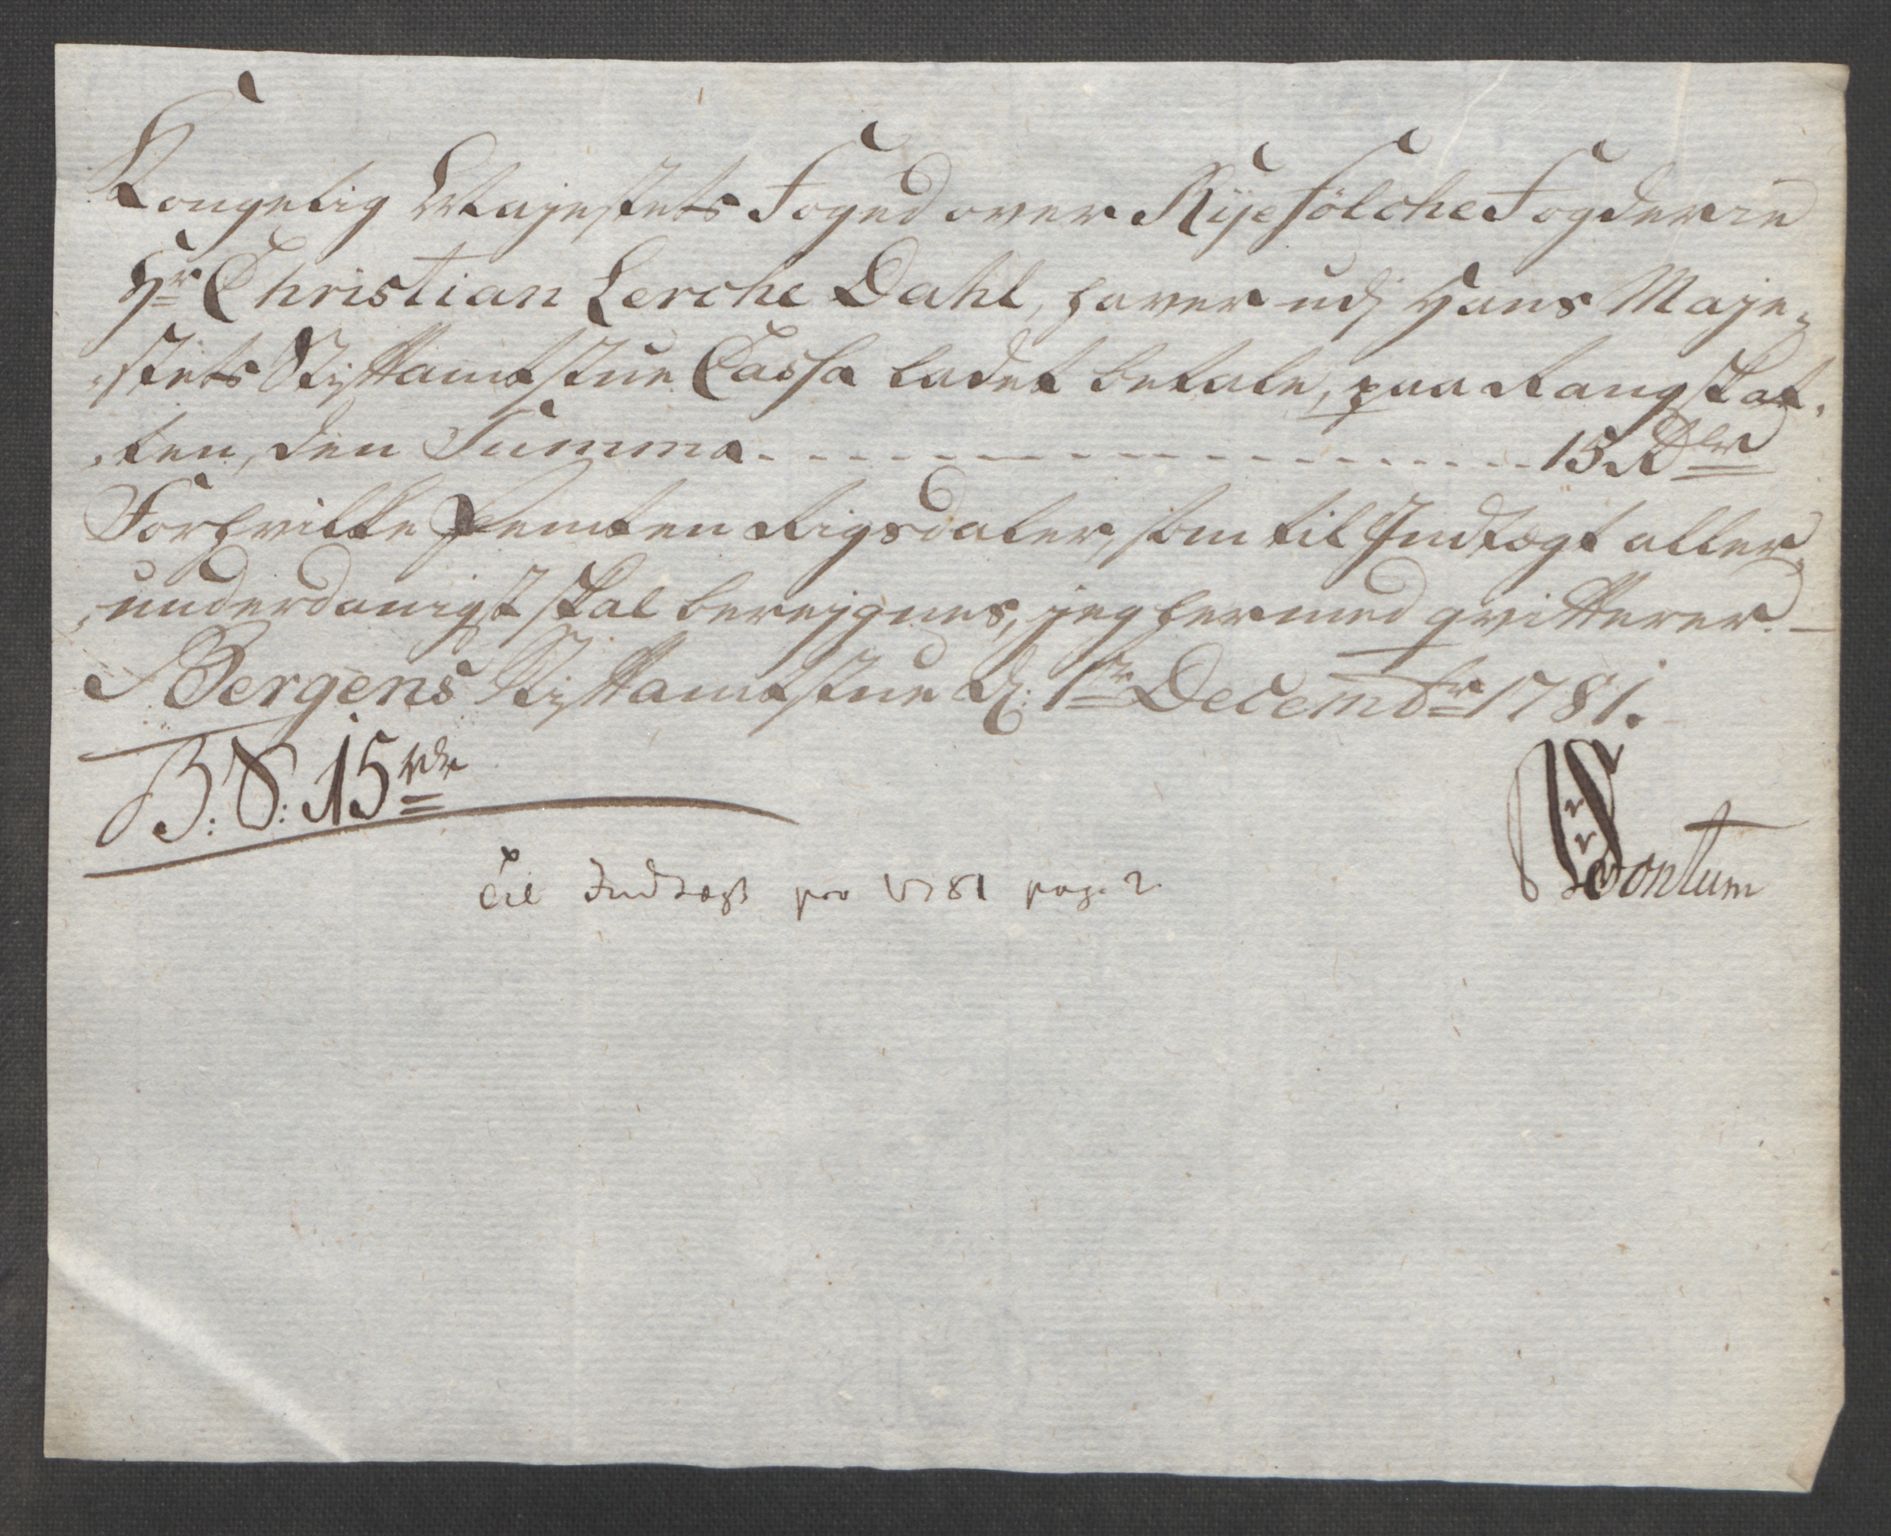 Kongelig Majestets Foged over Ryefölche Fogderie
Hr Christian Lerche Dahl, haver udj Hans Maje-
-stets Stiftamtstue Cassa ladet betale, paa Rangskat-
-ten, den Summa - - - - - - - - - - - - - - - - 15 Rdlr
Forhvilke Femten Rigsdaler, som til Indtægt aller-
-underdanigst skal beregnes, jeg hermed qvitterer. -
Bergens Stiftamtstue d: 1te Decembr 1781.
15 rdr
Fontum
Til Indtægt pro 1781 pag. 2.